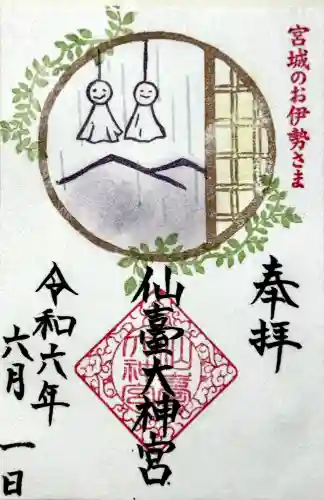 宮城のお伊勢さま
奉拝
仙臺大神宮
令和六年
六月一日